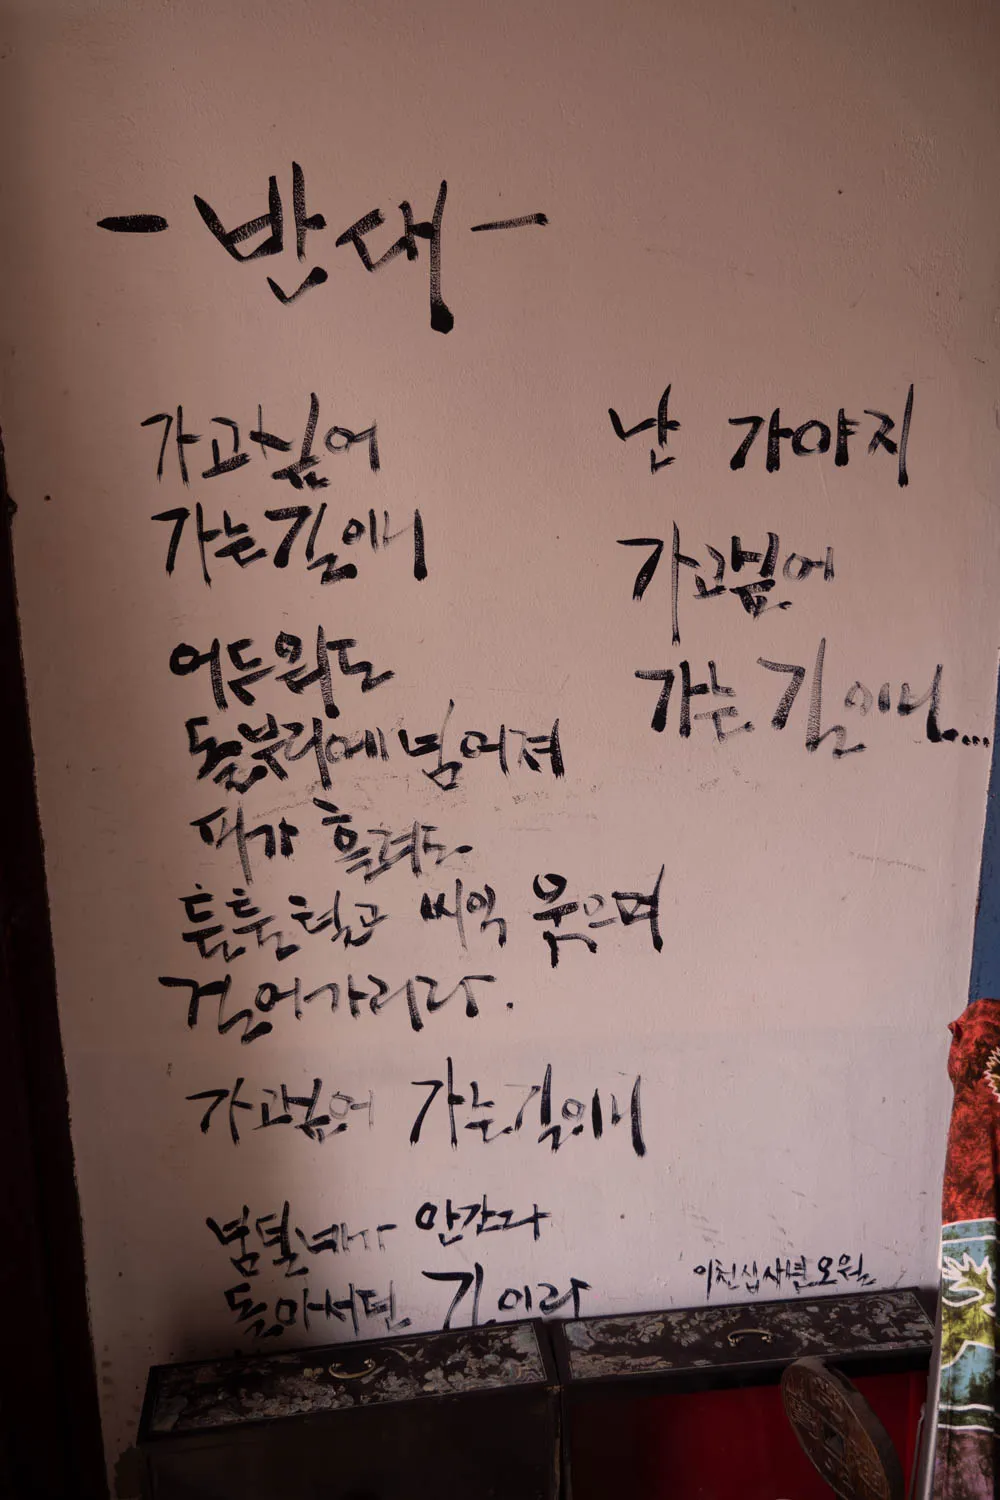 - 반대 -
가고싶어
가는길이니
어두워도
돌부리에 넘어져
피가 흘려도
툴툴털고 씨익 웃으며
걸어가리라.
가고싶어 가는길이니
남들내가 안간다
돌아서던 길이라
난 가야지
가고싶어
가는 길이니...
이천십사년오월